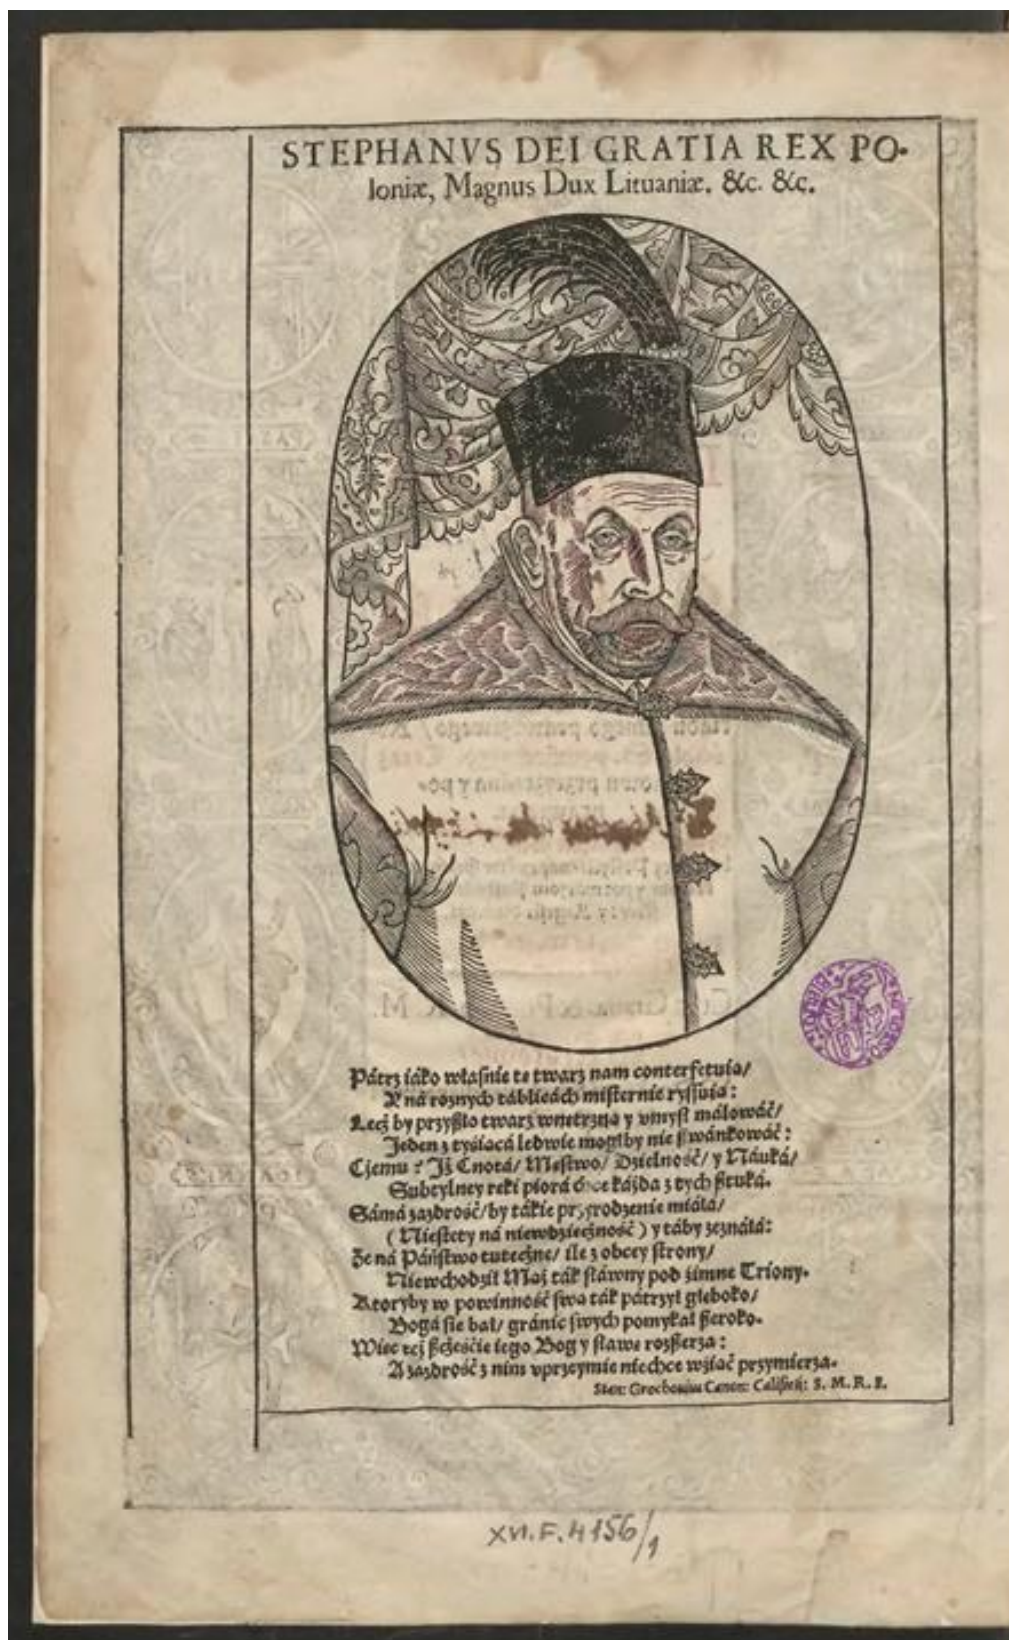 STEPHANVS DEI GRATIA REX PO-
loniæ, Magnus Dux Lituaniæ. &c. &c.
Pátrz iáko własnie tę twarz nam conterfetuią/
Y ná roznych tablicách misternie ryssuią:
Lecż by przyszło twarz wnętrzną y vmysł málowáć/
Jeden z tysiącá ledwie mogłby nie szwánkowáć:
Cżemu? Iż Cnotá/ Męstwo/ Dzielność/ y Náuká/
Subtylney ręki piorá chce káżda z tych sztuká.
Sámá zazdrość/ by tákie przyrodzenie miáłá/
(Niestety ná niewdzięcżność) y táby zeznáłá:
Że ná Páństwo tutecżne/ ile z obcey strony/
Niewchodził Mąż ták sławny pod żimne Triony.
Ktoryby w powinność swą ták pátrzył głęboko/
Bogá się bał/ gránic swych pomykał szeroko.
Więc też szcżęście iego Bog y sławę rozszerza:
A zazdrość z nim vprzeymie niechce wziąć przymierza.
Stan: Grochouius Canon: Calissen: S. M. R. S.
XVI.F.4156/1